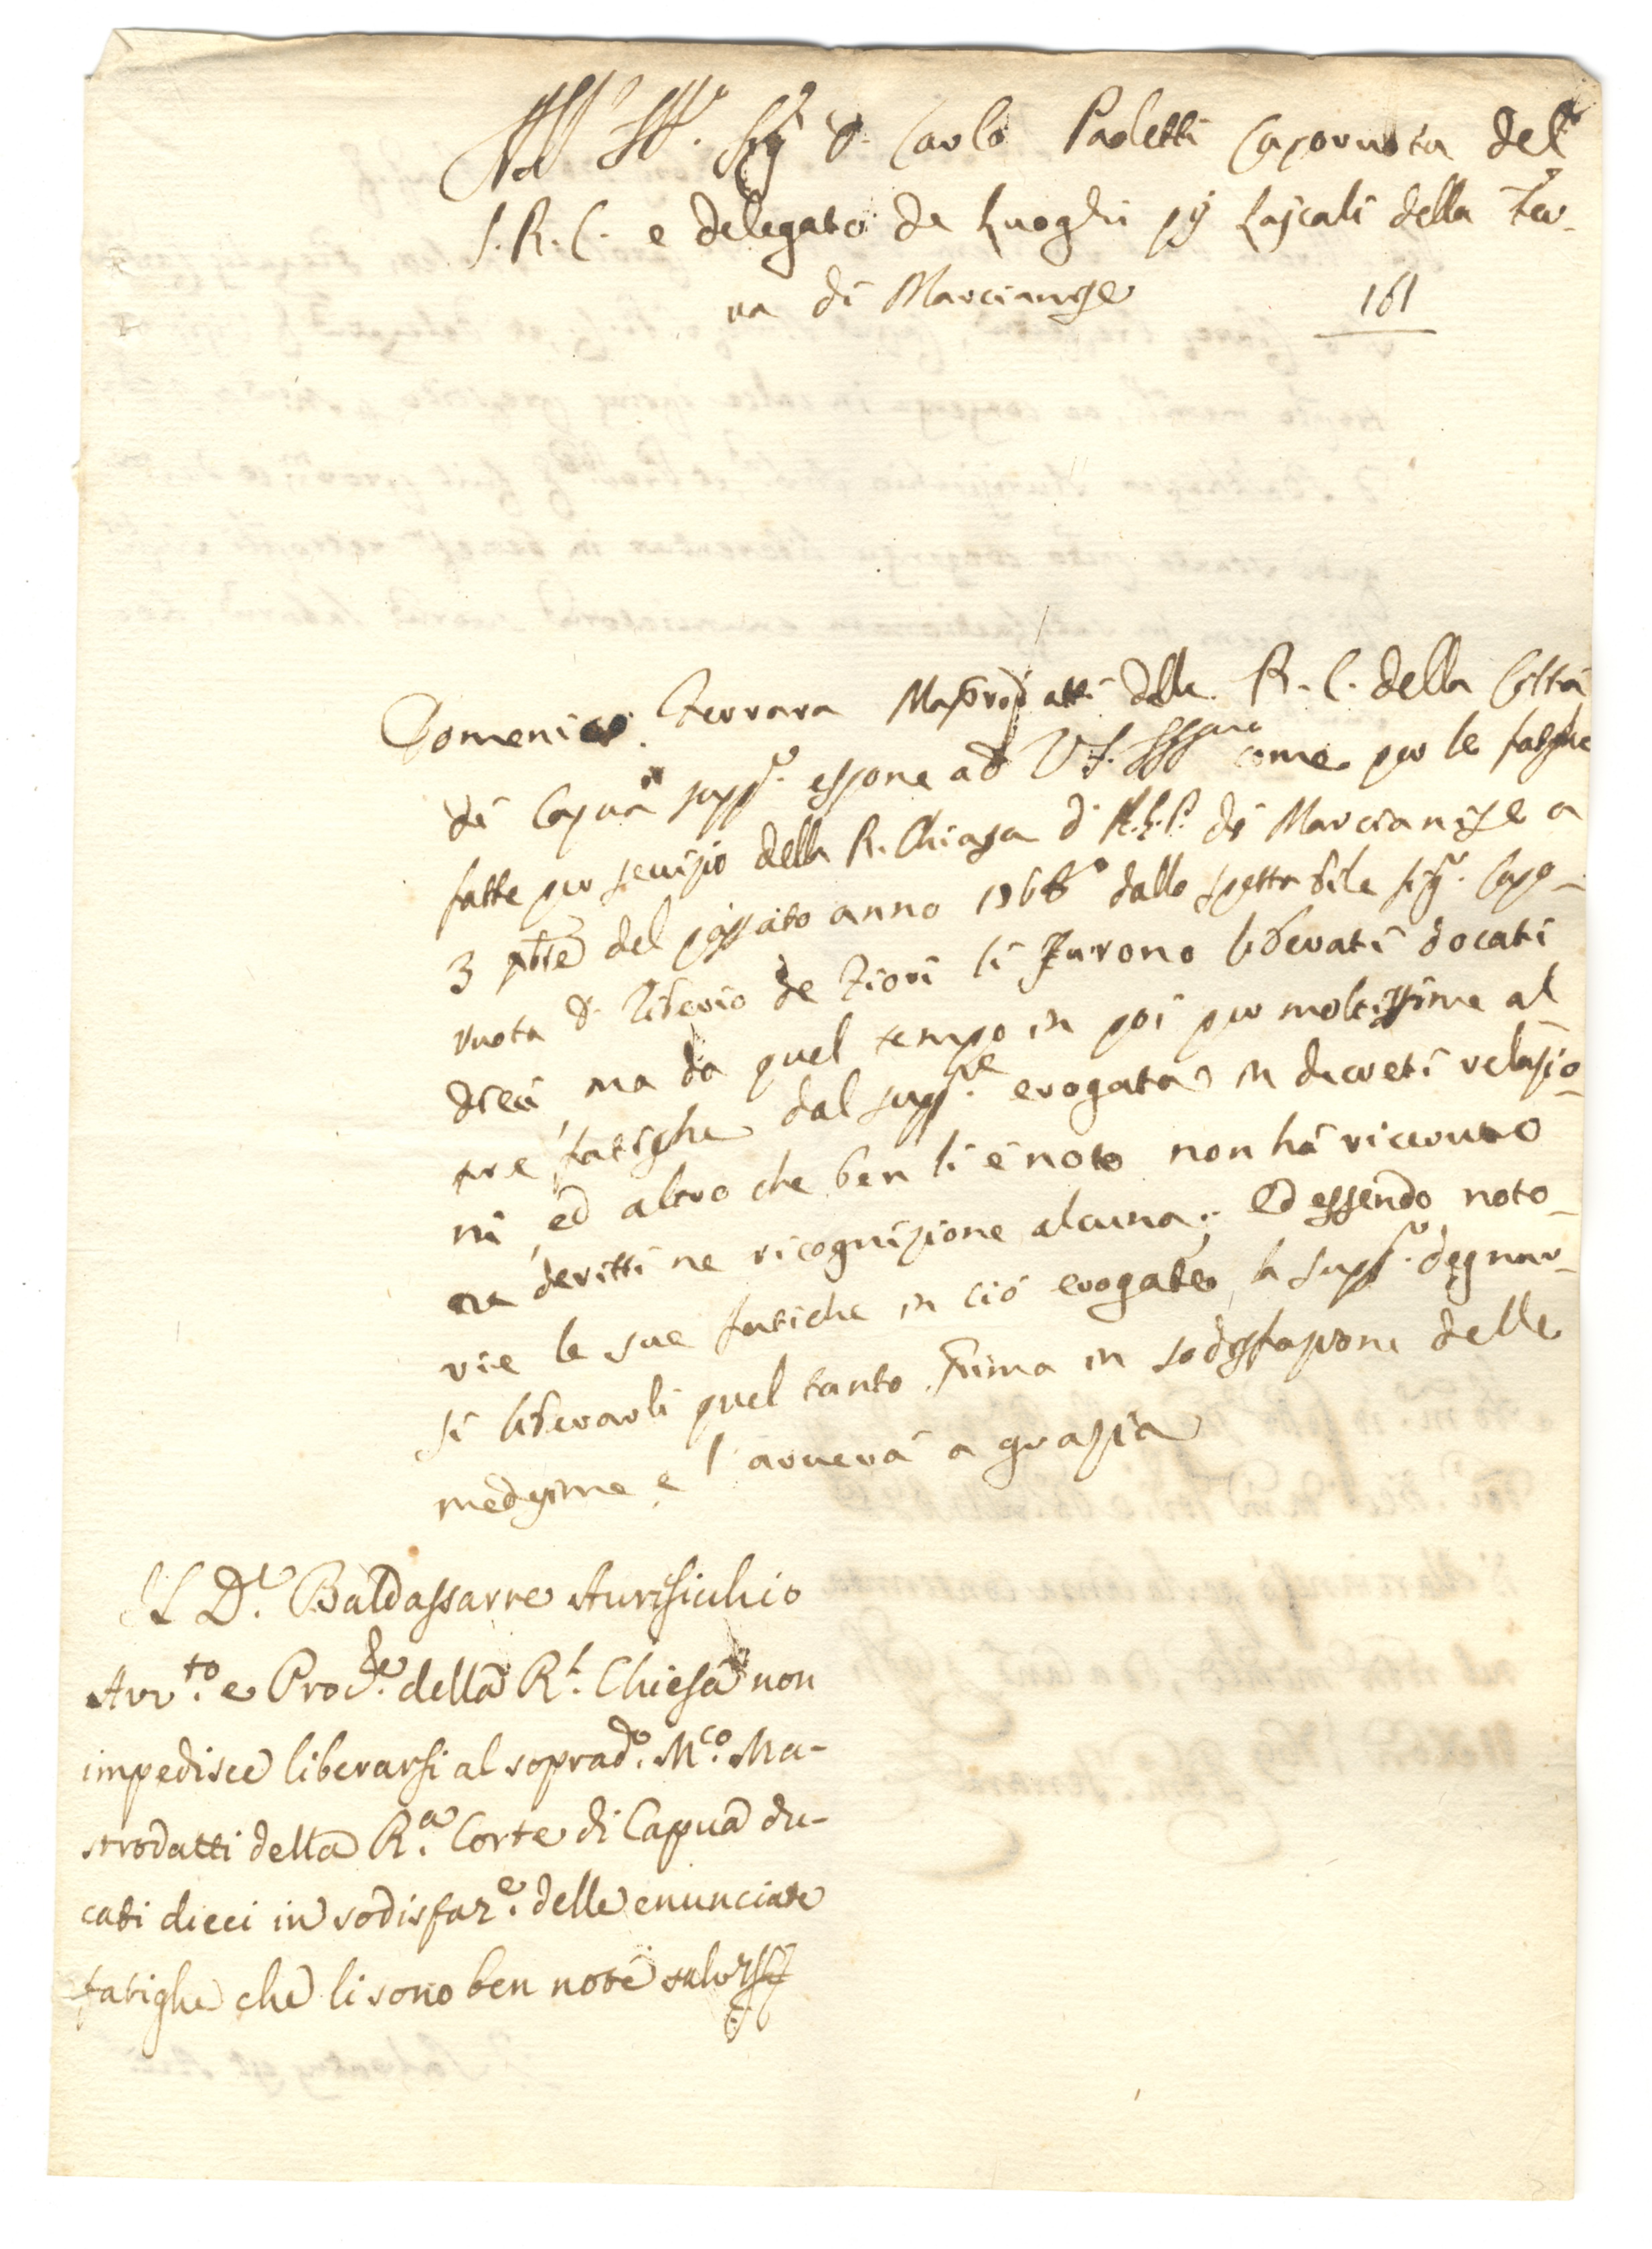 Sig.r D. Carlo Paoletti Caporuota del
S. R. C. e delegato de Luoghi pij Laicali della Ter-
ra di Marcianise
161
Domenico Ferrara Mastrod'atti della R. C. della Città
di Capua supp.e espone ad V. S. Ill.ma come per le fatighe
fatte per servizio della R. Chiesa di di Marcianise a
3 del passato anno dallo spettabile Sig.r Capo-
ruota D. Tiberio de Fiori li furono liberati docati
dieci, ma da quel tempo in poi per moltissime al
tre fatighe dal supp.te erogate in decreti relazio-
ni, ed altro che ben li é noto non há ricevuto
ne deritti ne ricognizione alcuna; Ed essendo noto-
rie le sue fatiche in ció erogate, la supp.a degnar-
si liberarli quel tanto stima in sodisfazione delle
medesime, e l'averá a grazia
Il D.r Baldassarre Aurisichio
Avv.to e Prod.e della R.l Chiesa non
impedisce liberarsi al soprad.o M.co Ma-
strodatti della R.a Corte di Capua du-
cati dieci in sodisfaz.e delle enunciate
fatighe che li sono ben note